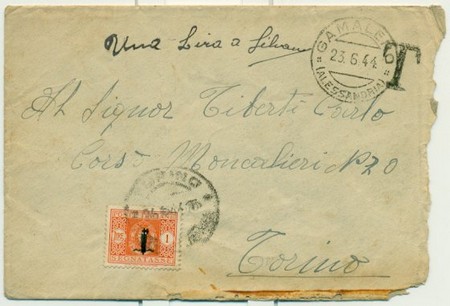 Una Lira a
GAMALE
23.6.44
(ALESSANDRIA)
T
Al Signor Tiberti Carlo
Corso Moncalieri N 20
TORINO
1
SEGNATASSE
Torino